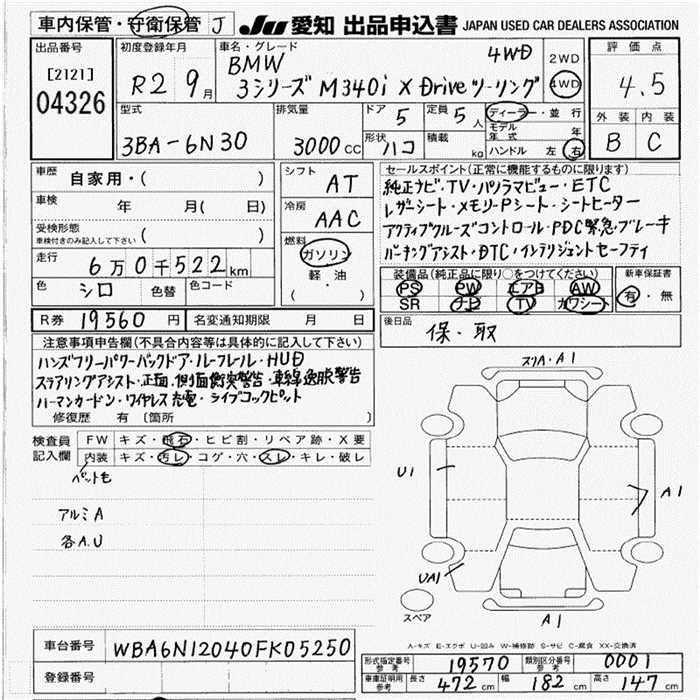 車内保管・守衛保管 J JU 愛知 出品申込書 JAPAN USED CAR DEALERS ASSOCIATION
出品番号 初度登録年月 車名・グレード 4WD 2WD 評価点
[2121] R2 9月 BMW 4WD 4.5
04326 3シリーズ M340i X Driveツーリング
型式 排気量 ドア 5 定員 5人 ディーラー・並行 外装 内装
3BA-6N30 3000cc 形状 ハコ 積載 kg モデル年式 年 B C
ハンドル 左 右
車歴 自家用・( ) シフト AT セールスポイント(正常に機能するものに限ります)
車検 年 月( 日) 冷房 AAC 純正ナビ・TV・パノラマビュー・ETC
受検形態 ( ) レザーシート・メモリーPシート・シートヒーター
車検付きのみ記入して下さい 燃料 アクティブクルーズコントロール・PDC緊急・ブレーキ
走行 6万0千522km ガソリン パーキングアシスト・DTC・インテリジェントセーフティ
色 シロ 色替 色コード 軽油 装備品(純正品に限り○をつけてください) 新車保証書
( ・ ) PS PW エアB AW 有・無
SR ナビ TV カワシート
R券 19560円 名変通知期限 月 日 後日品 保・取
注意事項申告欄(不具合内容等は具体的に記入して下さい)
ハンズフリーパワーバックドア・ルーフレール・HUD
ステアリングアシスト・正面、側面衝突警告・車線逸脱警告
ハーマンカードン・ワイヤレス充電・ライブコックピット
修復歴 有 〔箇所 〕
検査員記入欄 FW キズ・飛石・ヒビ割・リペア跡・X要
内装 キズ・汚レ・コゲ・穴・スレ・キレ・破レ
ペット毛
アルミA
各A.U
スリA・A1
U1
A1
UA1
A1
スペア
A-キズ E-エクボ U-凹み W-補修跡 S-サビ C-腐食 XX-交換済
車台番号 WBA6N12040FK05250
登録番号
形式指定番号 参考 19570 類別区分番号 参考 0001
車庫証明用 参考 長さ 472cm 幅 182cm 高さ 147cm